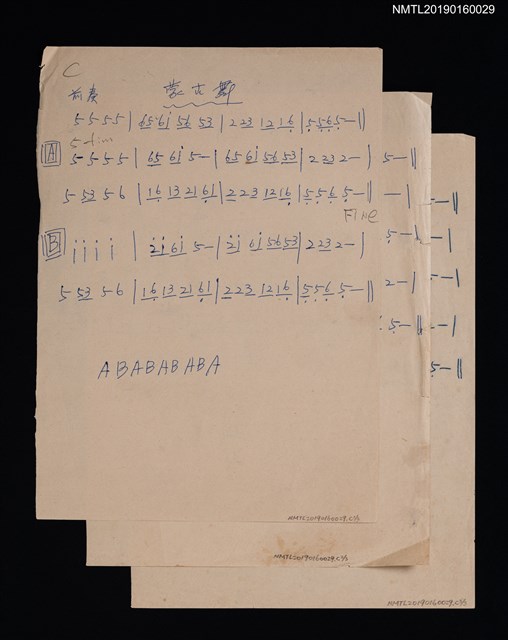 NMTL20190160029
C
前奏 蒙古舞
5 5 5 5 | 65 6i 56 53 | 2 23 12 16 | 5 5 6 5 — ||
A 5 5 5 5 | 65 6i 5 — | 65 6i 56 53 | 2 23 2 — | 5 — ||
5 53 5 6 | 16 13 21 61 | 2 23 12 16 | 5 5 6 5 — || — | 5 — ||
Fine
B i i i i | 2i 6i 5 — | 2i 6i 56 53 | 2 23 2 — | 5 — || — |
5 53 5 6 | 16 13 21 61 | 2 23 12 16 | 5 5 6 5 — || 2 — | 5 — |
5 — || — |
5 — ||
A B A B A B A B A
NMTL20190160029.c3/3
NMTL20190160029.c3/3
NMTL20190160029.c3/3